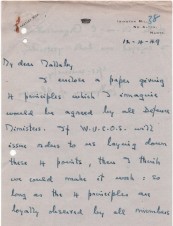 38
12-4-49
My dear Mallaby
I enclose a paper giving
4 principles which I imagine
would be agreed by all Defence
Ministers. If W.U.C.O.S. will
issue orders to us laying down
these 4 points, then I think
we could make it work; so
long as the 4 principles are
loyally observed by all members